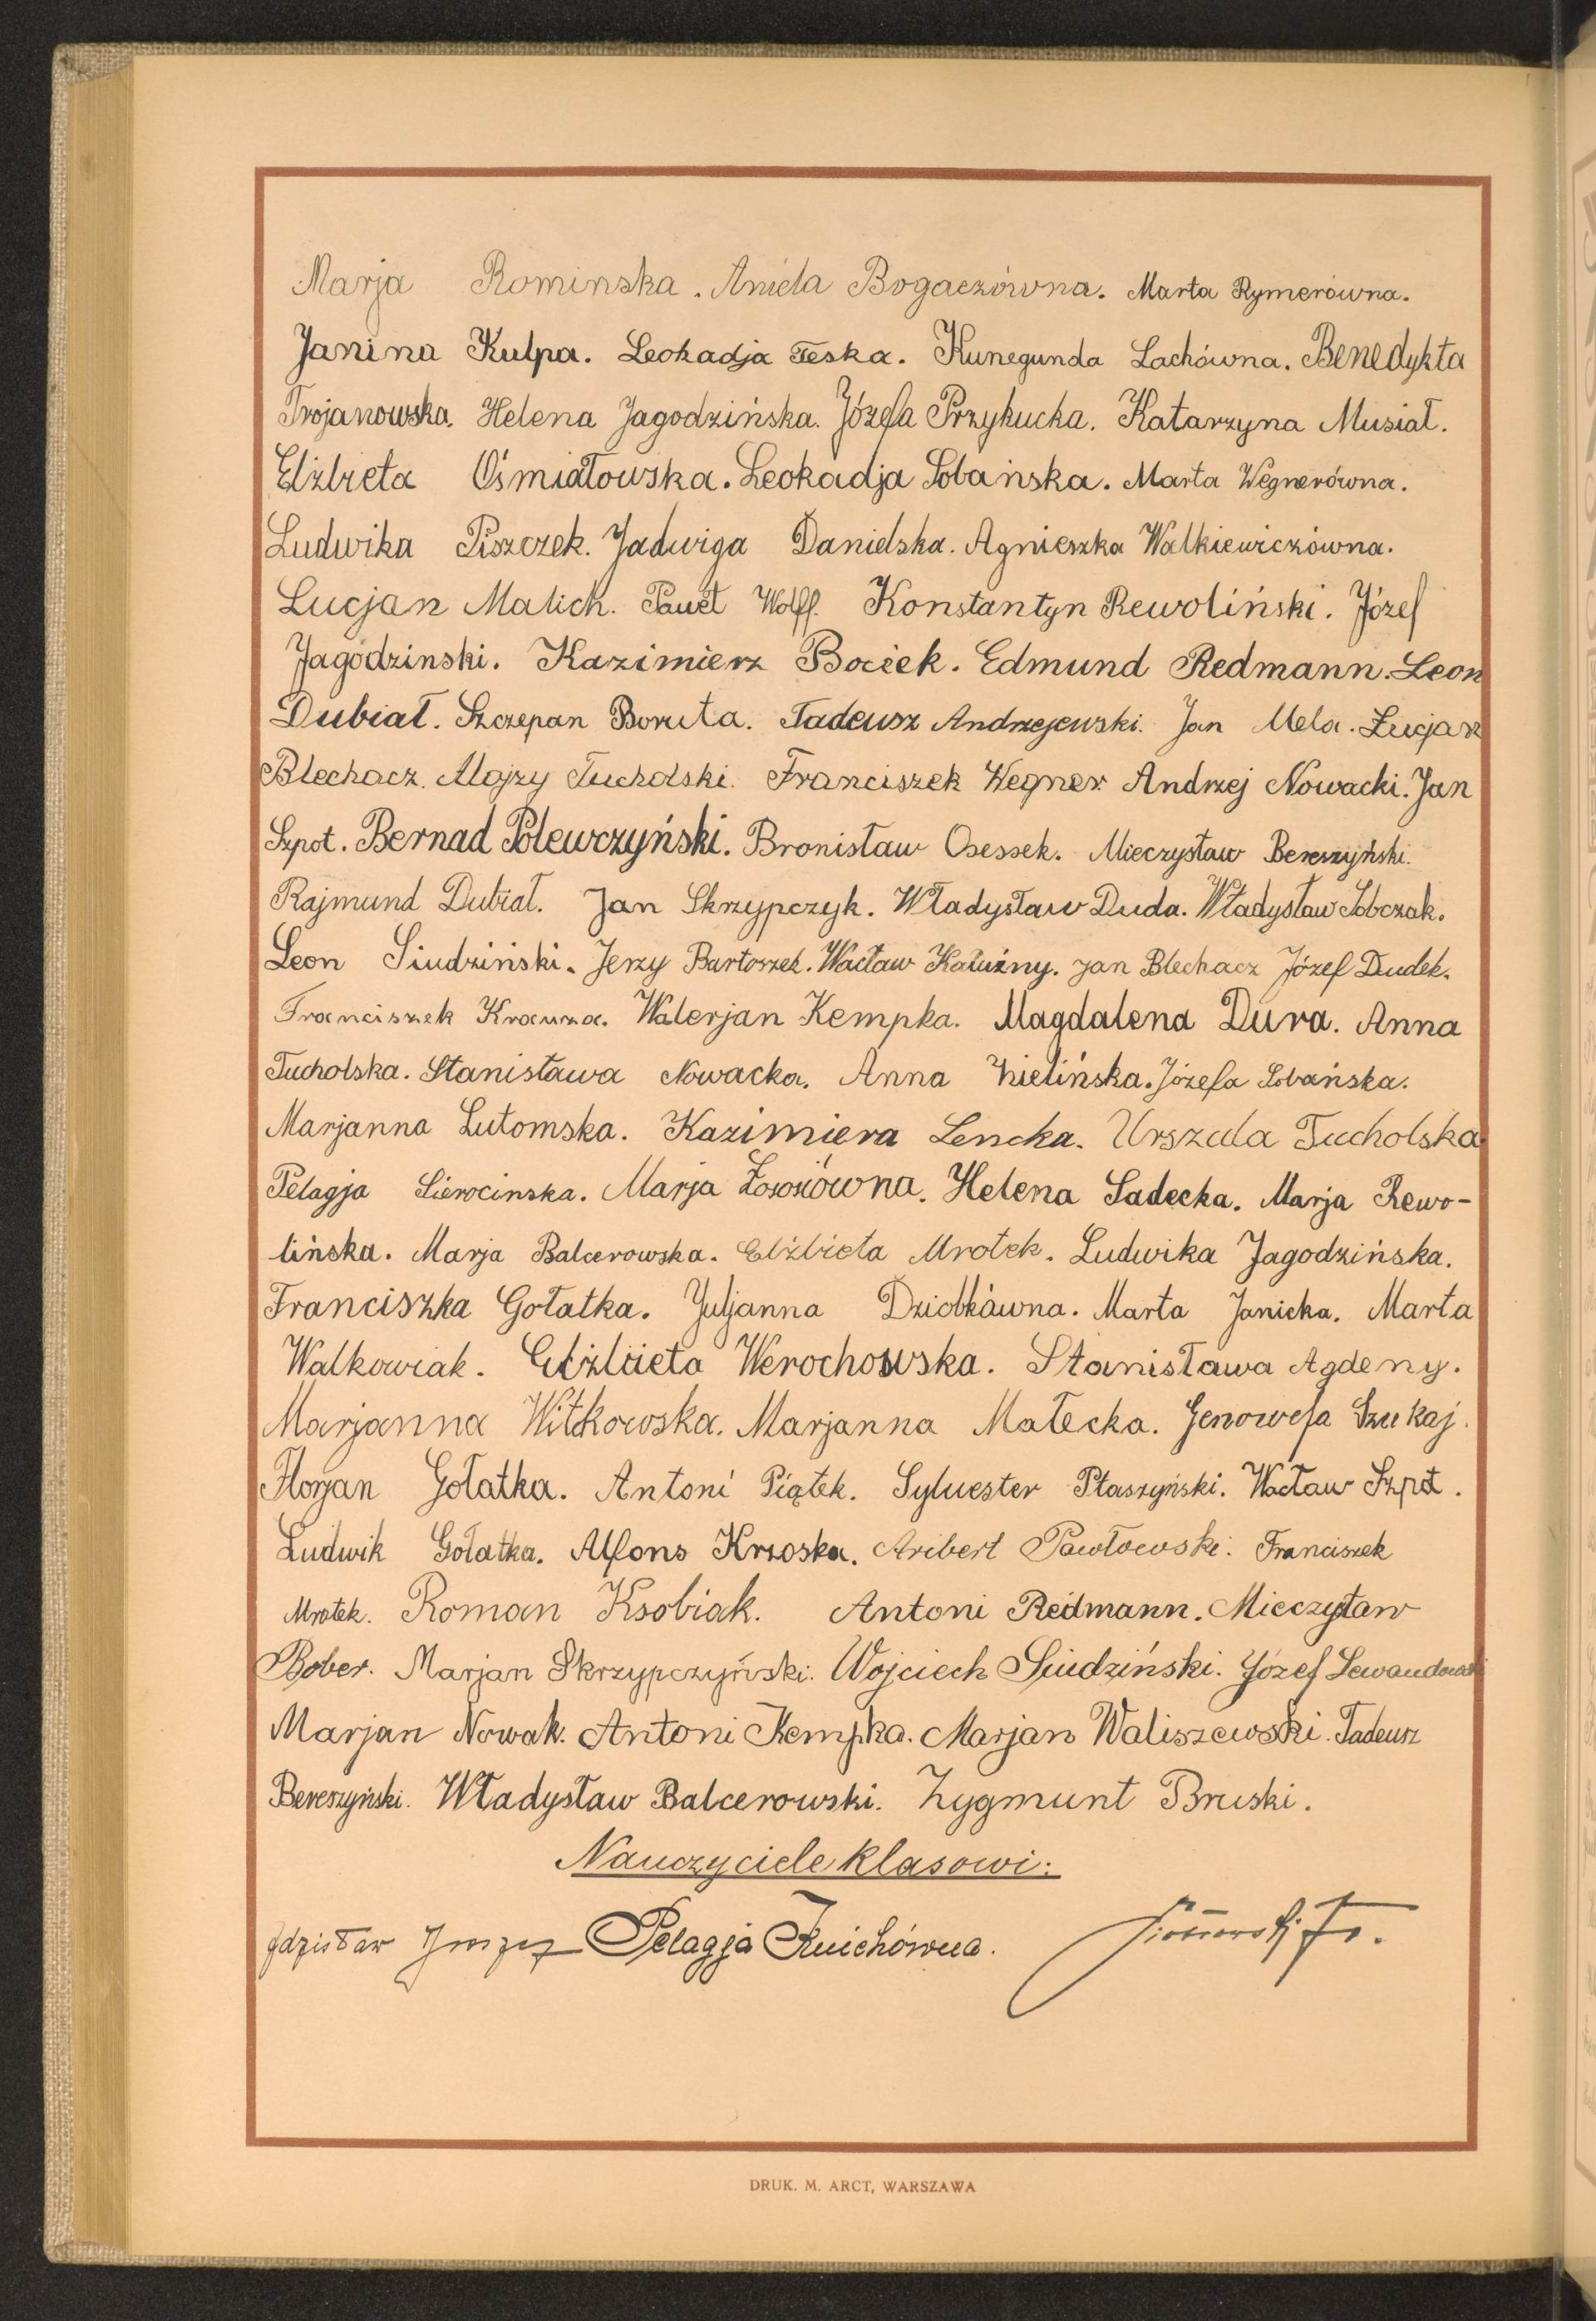 Marja Rominska. Aniela Bogaczówna. Marta Rymerówna.
Janina Kulpa. Leokadja Teska. Kunegunda Lachówna. Benedykta
Trojanowska. Helena Jagodzińska. Józefa Przykucka. Katarzyna Musiał.
Elżbieta Ośmiałowska. Leokadja Sobańska. Marta Wegnerówna.
Ludwika Piszczek. Jadwiga Danielska. Agnieszka Walkiewiczówna.
Lucjan Malich. Paweł Wolff. Konstantyn Rewoliński. Józef
Jagodzinski. Kazimierz Bociek. Edmund Redmann. Leon
Dubiał. Szczepan Boruta. Tadeusz Andrzejewski. Jan Mela. Łucjan
Blechacz. Alojzy Tucholski. Franciszek Wegner. Andrzej Nowacki. Jan
Szpot. Bernad Polewczyński. Bronisław Osessek. Mieczysław Bereszyński.
Rajmund Dubiał. Jan Skrzypczyk. Władysław Duda. Władysław Sobczak.
Leon Siudziński. Jerzy Bartoszek. Wacław Kałużny. Jan Blechacz Józef Dudek.
Franciszek Krauza. Walerjan Kempka. Magdalena Dura. Anna
Tucholska. Stanisława Nowacka. Anna Zielińska. Józefa Sobańska.
Marjanna Lutomska. Kazimiera Lencka. Urszula Tucholska.
Pelagja Sierocinska. Marja Łososiówna. Helena Sadecka. Marja Rewo-
lińska. Marja Balcerowska. Elżbieta Mrotek. Ludwika Jagodzińska.
Franciszka Gołatka. Juljanna Dziobkówna. Marta Janicka. Marta
Walkowiak. Elżbieta Werochowska. Stanisława Agdeny.
Marjanna Witkowska. Marjanna Małecka. Genowefa Szukaj.
Florjan Gołatka. Antoni Piątek. Sylwester Ptaszyński. Wacław Szpot.
Ludwik Gołatka. Alfons Krzoska. Aribert Pawłowski. Franciszek
Mrotek. Roman Ksobiak. Antoni Redmann. Mieczysław
Bober. Marjan Skrzypczyński. Wojciech Siudziński. Józef Lewandowski
Marjan Nowak. Antoni Kempka. Marjan Waliszewski. Tadeusz
Bereszyński. Władysław Balcerowski. Zygmunt Bruski.
Nauczyciele klasowi:
Zdzisław Pelagja Kuichówna.
DRUK. M. ARCT, WARSZAWA